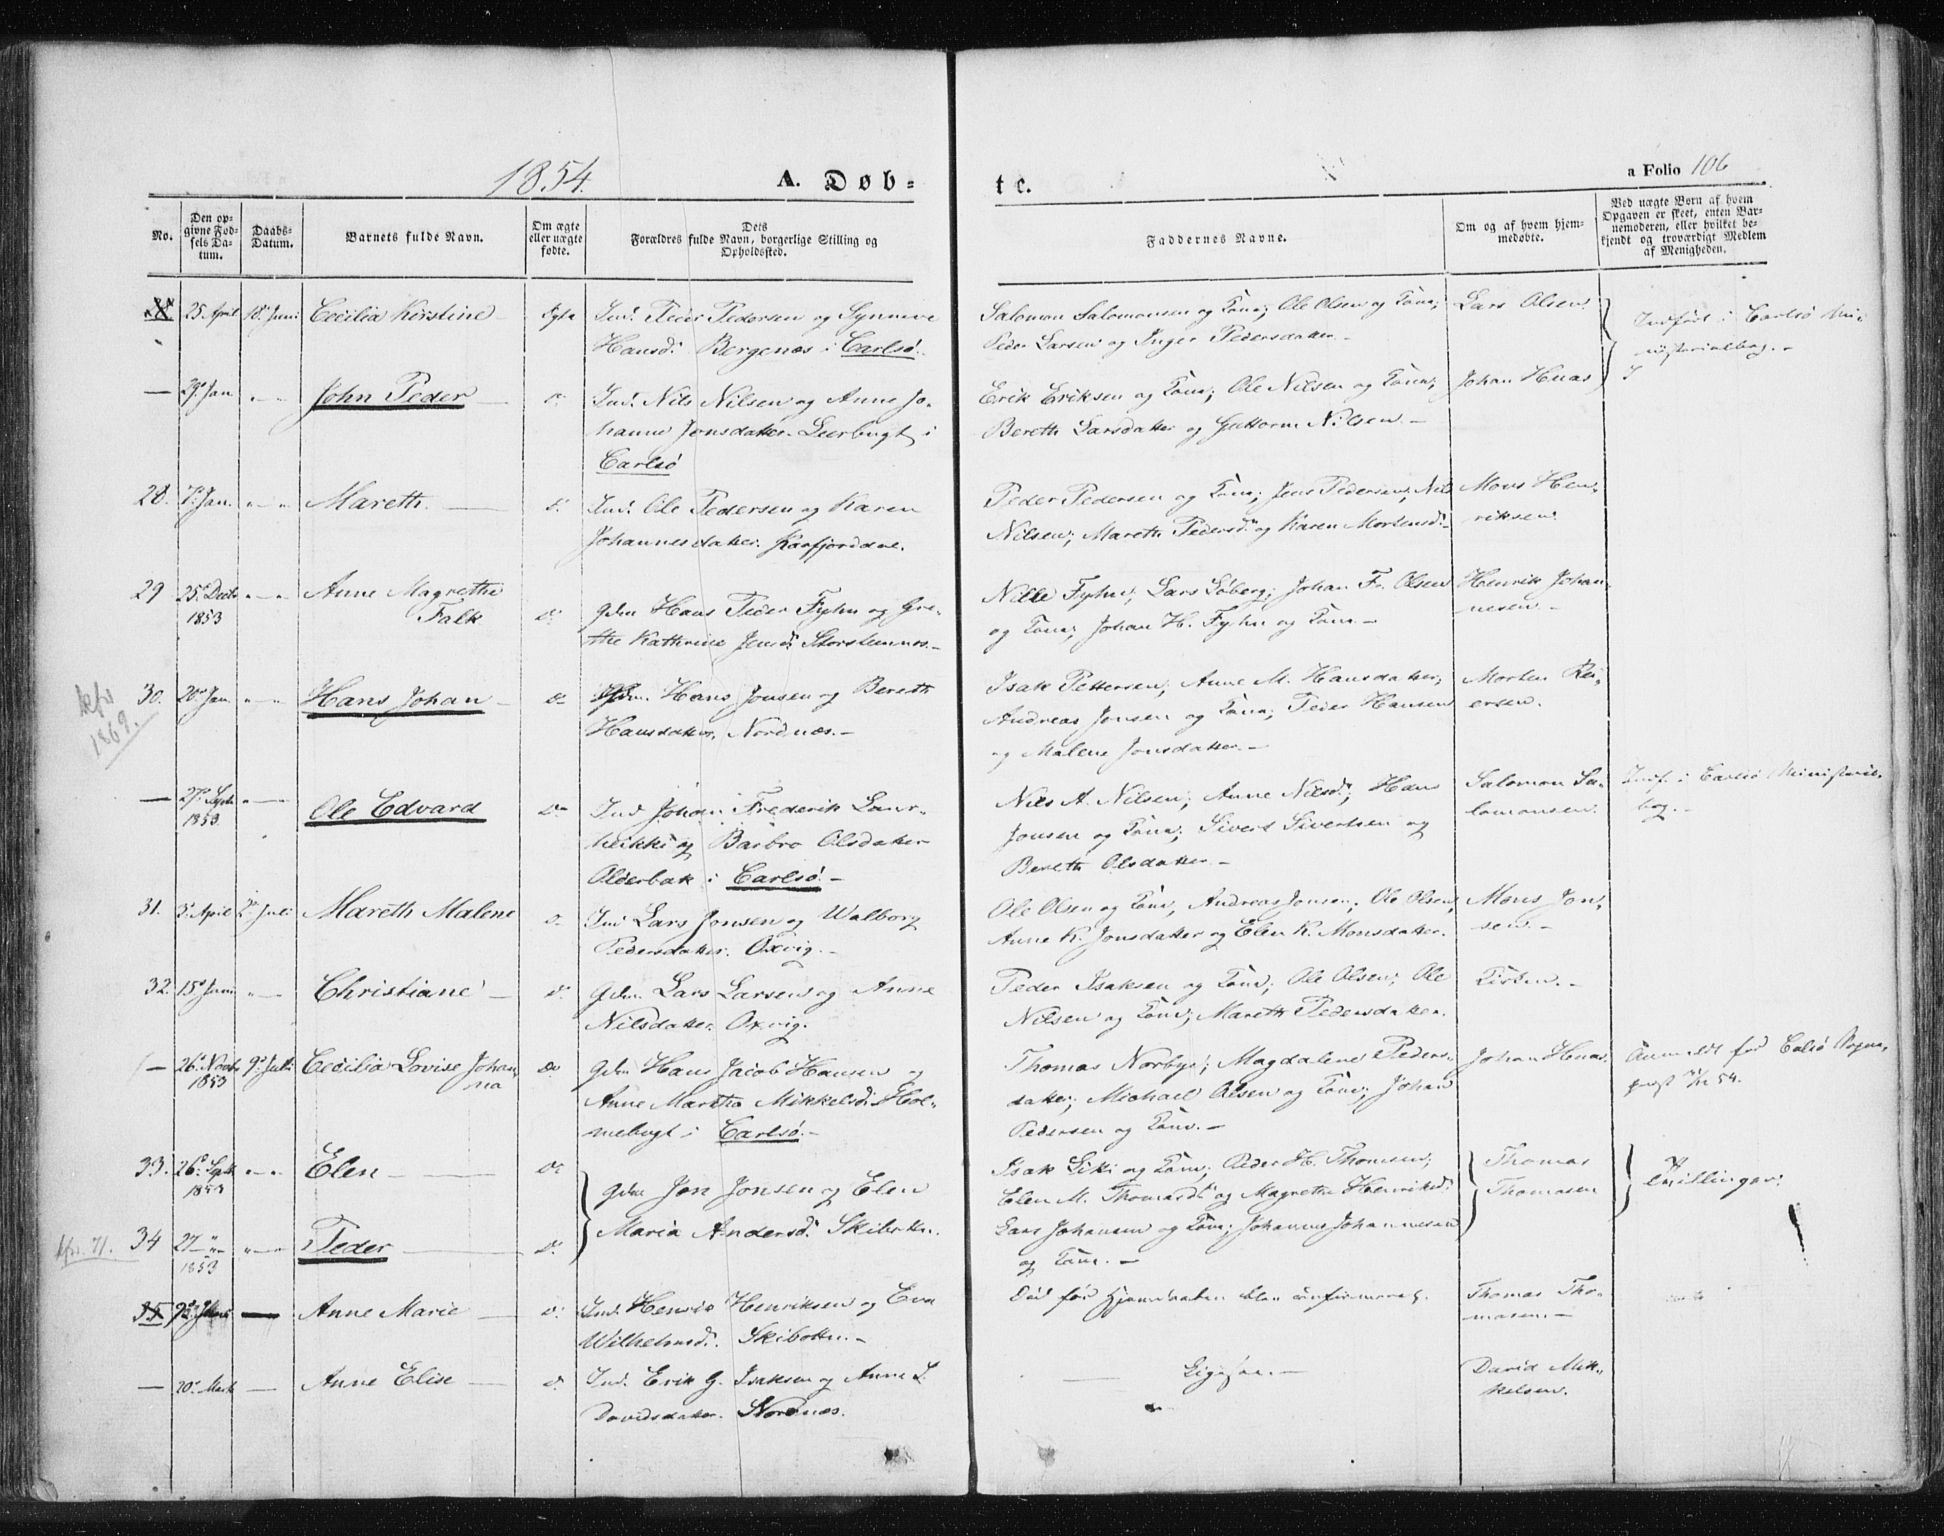 1854.
A. Døb-
te.
a Folio 106
No.
Den op-
givne Fød-
sels Da-
tum.
Daabs-
Datum.
Barnets fulde Navn.
Om ægte
eller uægte
fødte.
Dets
Forældres fulde Navn, borgerlige Stilling og
Opholdssted.
Faddernes Navne.
Om og af hvem hjem-
medøbte.
Ved uægte Børn af hvem
Opgaven er skeet, enten Bar-
nemoderen, eller hvilket be-
kjendt og troværdigt Medlem
af Menigheden.
25. April 18. Juni Cecilia Kirstine Ægte Ind. Peder Pedersen og Synneve
Hansd. Bergenæs i Carlsø.
Salomon Salomonsen og Kone; Ole Olsen og Kone;
Peder Larsen og Inger Pedersdatter.
Lars Olsen
Indført i Carlsø Mi-
nisterialbog.
— 29. Jan. John Peder d. Ind. Nils Nilsen og Anne Jo-
hanne Jonsdatter. Leerbugt i
Carlsø
Erik Eriksen og Kone; Ole Nilsen og Kone;
Bereth Larsdatter og Guttorm Nilsen.
Johan Huas
28. 7. Jan. Mareth. d. Ind. Ole Pedersen og Karen
Johannesdatter. Kaafjorddal.
Peder Pedersen og Kone; Jens Pedersen; Nils
Nilsen; Mareth Pedersd. og Karen Mortensd.
Mons Hen-
riksen
29 25. Decb. Anne Magrethe
1853 Falk d. Gdm. Hans Peder Fyhn og Gre-
the Kathrine Jensd. Storstennes.
Nille Fyhn; Lars Søberg; Johan Fr. Olsen
og Kone; Johan H. Fyhn og Kone.
Henrik Johan-
nesen
kfr
1869.
30. 20. Jan. Hans Johan d. Gdm. Hans Jonsen og Bereth
Hansdatter. Nordnæs.
Isak Pettersen; Anne M. Hansdatter;
Andreas Jonsen og Kone; Peder Hansen
og Malene Jonsdatter.
Morten Rei-
ersen.
— 27. Septb.
1853 Ole Edvard d. Ind. Johan Frederik Laur-
heikki og Barbro Olsdatter
Olderbak i Carlsø.
Nils A. Nilsen; Anne Nilsd; Hans
Jonsen og Kone; Sivert Sivertsen og
Bereth Olsdatter.
Salomon Sa-
lomonsen.
Indf. i Carlsø Ministerial-
bog.
31. 3. April 2. Juli Mareth Malene d. Ind Lars Jonsen og Walborg
Pedersdatter. Oxvig.
Ole Olsen og Kone; Andreas Jonsen; Ole Olsen;
Anne K. Jonsdatter og Elen K. Monsdatter.
Mons Jon-
sen.
32. 15. Juni Christiane d. Gdm. Lars Larsen og Anne
Nilsdatter. Oxvig.
Peder Isaksen og Kone; Ole Olsen; Ole
Nilsen og Kone; Mareth Pedersdatter.
Kirken.
— 26. Novb. 9. Juli Cecilia Lovise Johan-
1853 na d. Gdm Hans Jacob Hansen og
Anne Martha Mikkelsd. Hol-
mebugt i Carlsø.
Thomas Norbye; Magdalene Peders-
datter; Michael Olsen og Kone; Johan
Pedersen og Kone.
Johan Huas
Anmeldt for Calsø Sogne-
præst 54.
33. 26. Septb.
1853 Elen d. Gdm Jon Jonsen og Elen
Maria Andersd. Skibotn.
Isak Siki og Kone; Peder H. Thomsen;
Elen M. Thomasd. og Magrethe Henriksd.
Thomas
Thomasen
Tvillinger.
kfr. 71. 34 27
1853 Peder d.
Lars Johansen og Kone; Johannes Johannesen
og Kone.
35 Anne Marie d. Ind. Henrik Henriksen og Eva
Wilhelmsd. Skibotn.
Død før Hjemdaaben blev confirmeret.
Thomas Tho-
masen.
— 20. Mark — Anne Elise d. Ind. Erik G. Isaksen og Anne L.
Davidsdatter. Nordnæs.
Ligesaa.
David Mik-
kelsen.